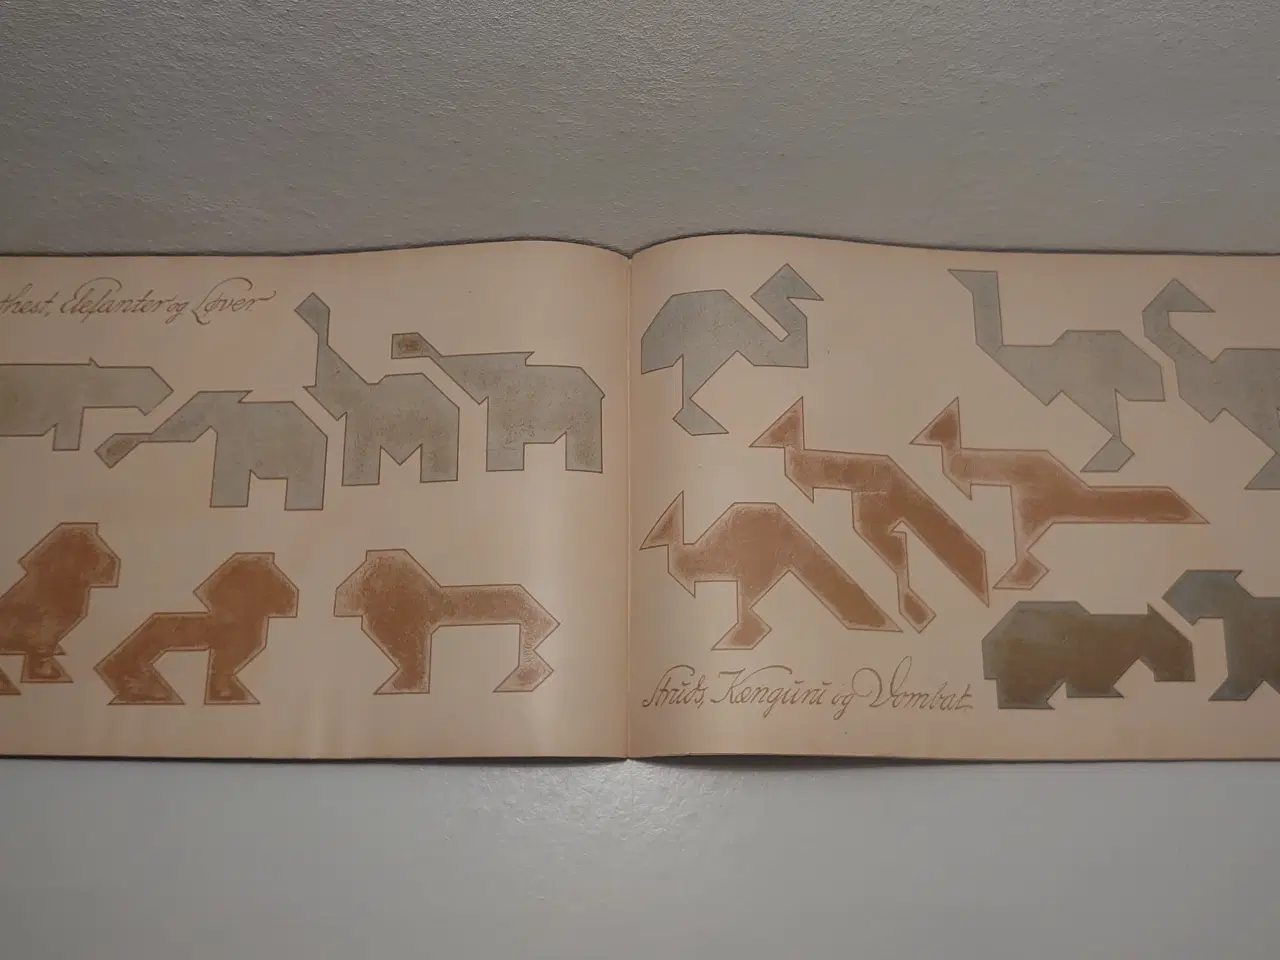 hest, Elefanter og Løver
Struds, Kænguru og Vombat